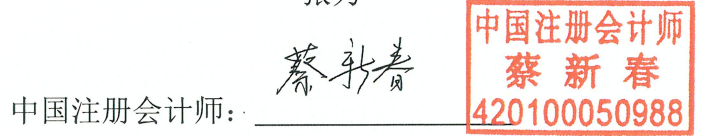 蔡新春
中国注册会计师：
中国注册会计师
蔡新春
420100050988